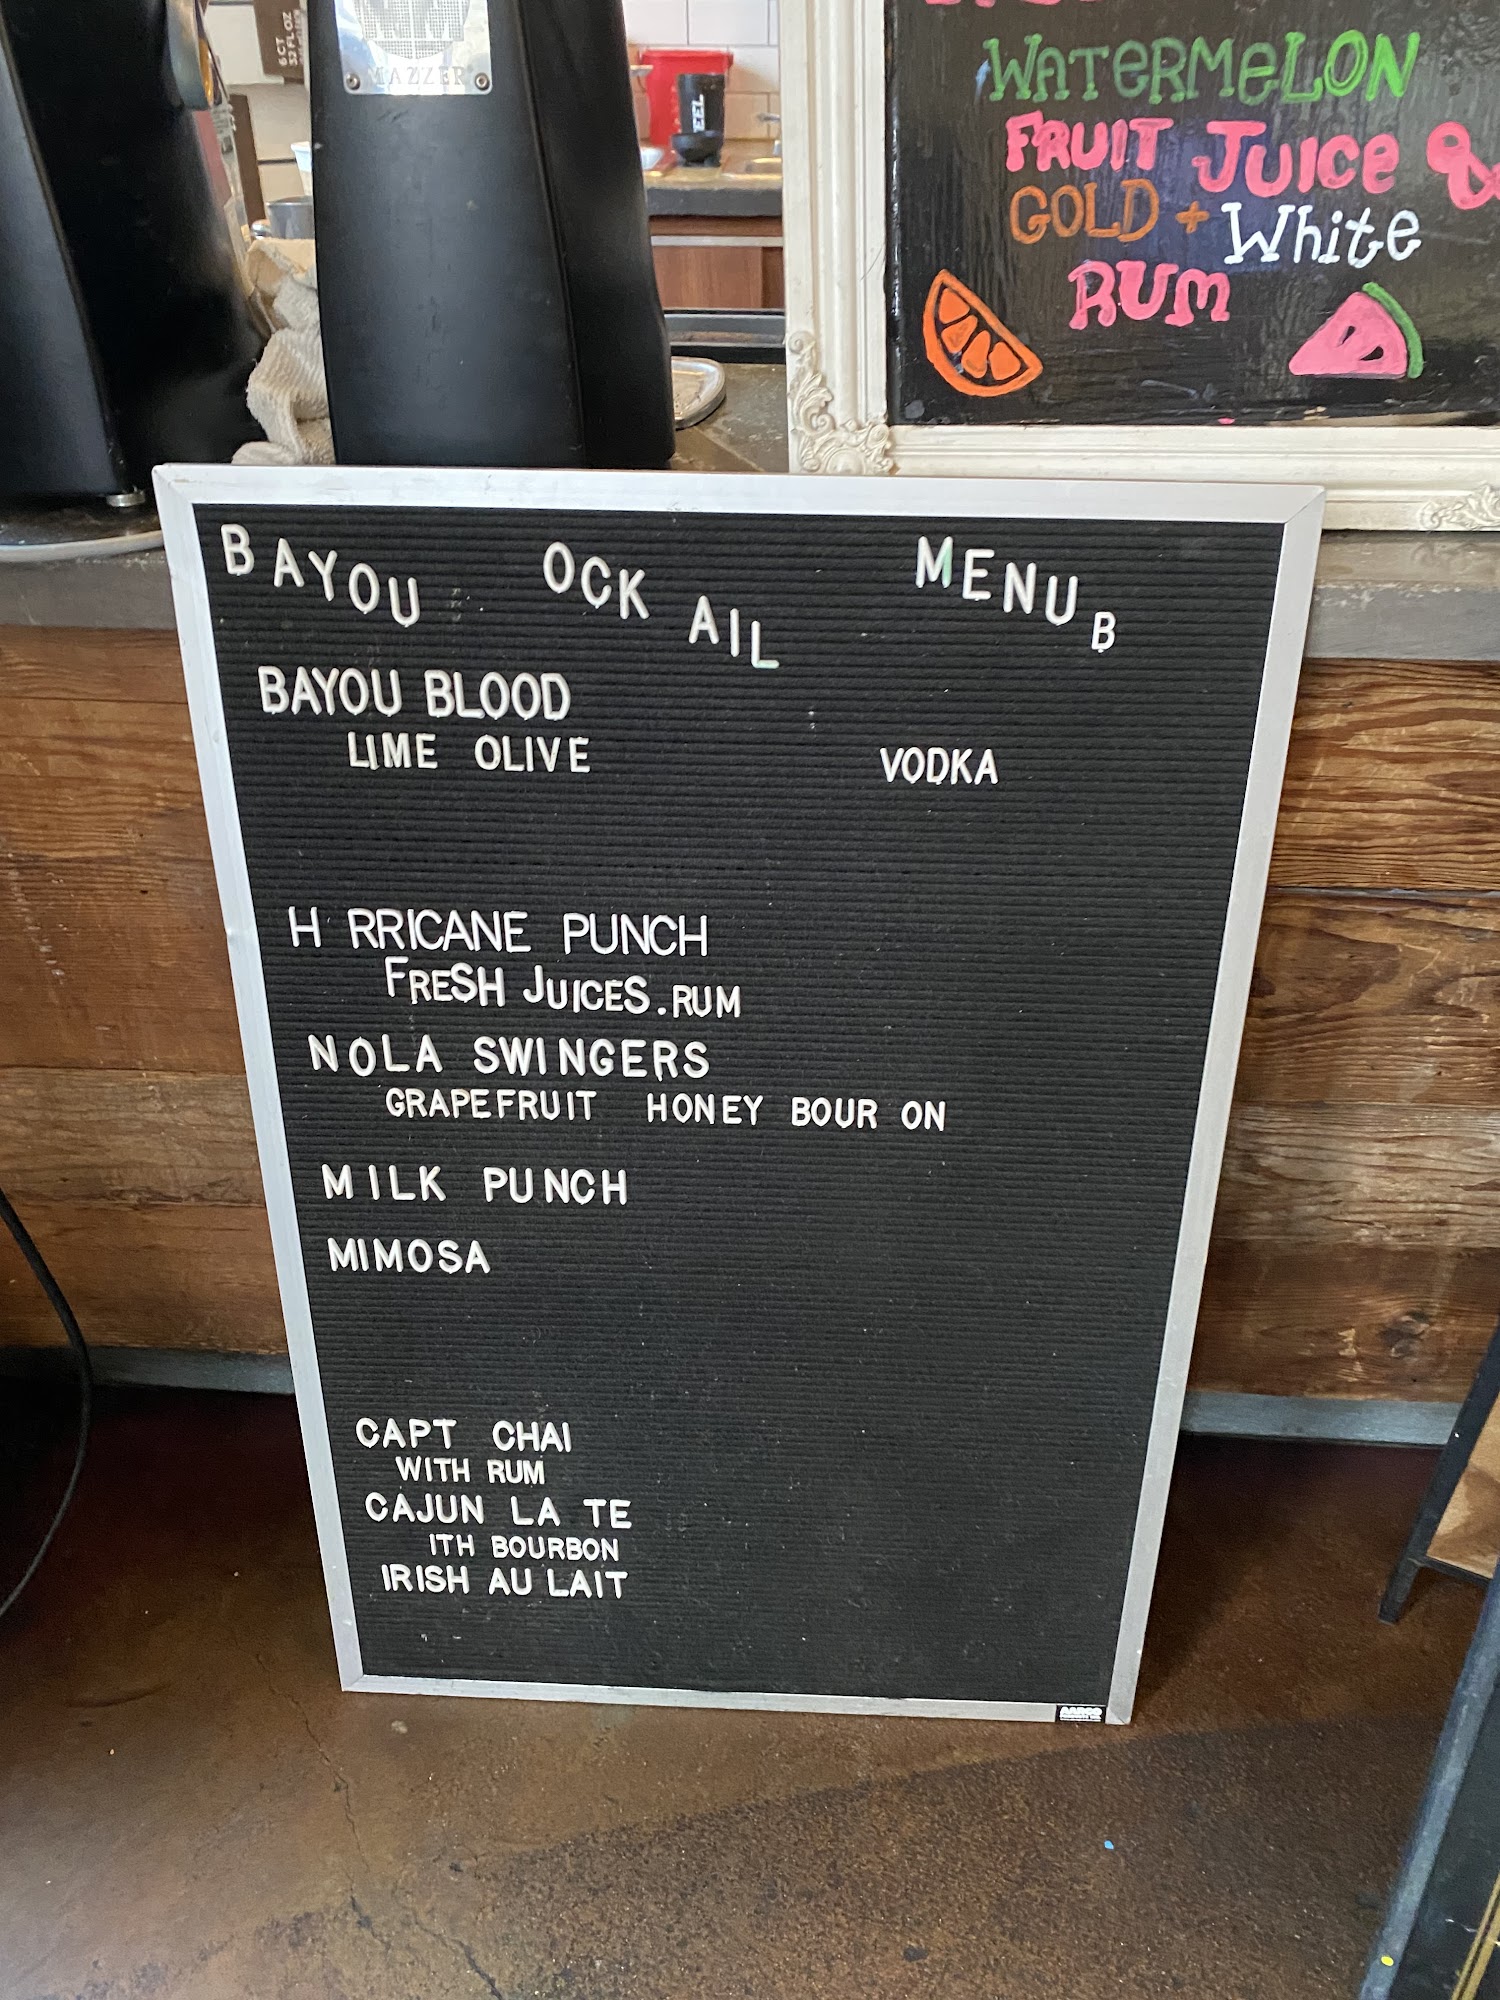 MAZZER
6 CT
32 FL OZ
EEL
WATERMELON
FRUIT JUICE &
GOLD + White
RUM
BAYOU OCK AIL MENU B
BAYOU BLOOD
LIME OLIVE VODKA
H RRICANE PUNCH
FRESH JUICES.RUM
NOLA SWINGERS
GRAPEFRUIT HONEY BOUR ON
MILK PUNCH
MIMOSA
CAPT CHAI
WITH RUM
CAJUN LA TE
ITH BOURBON
IRISH AU LAIT